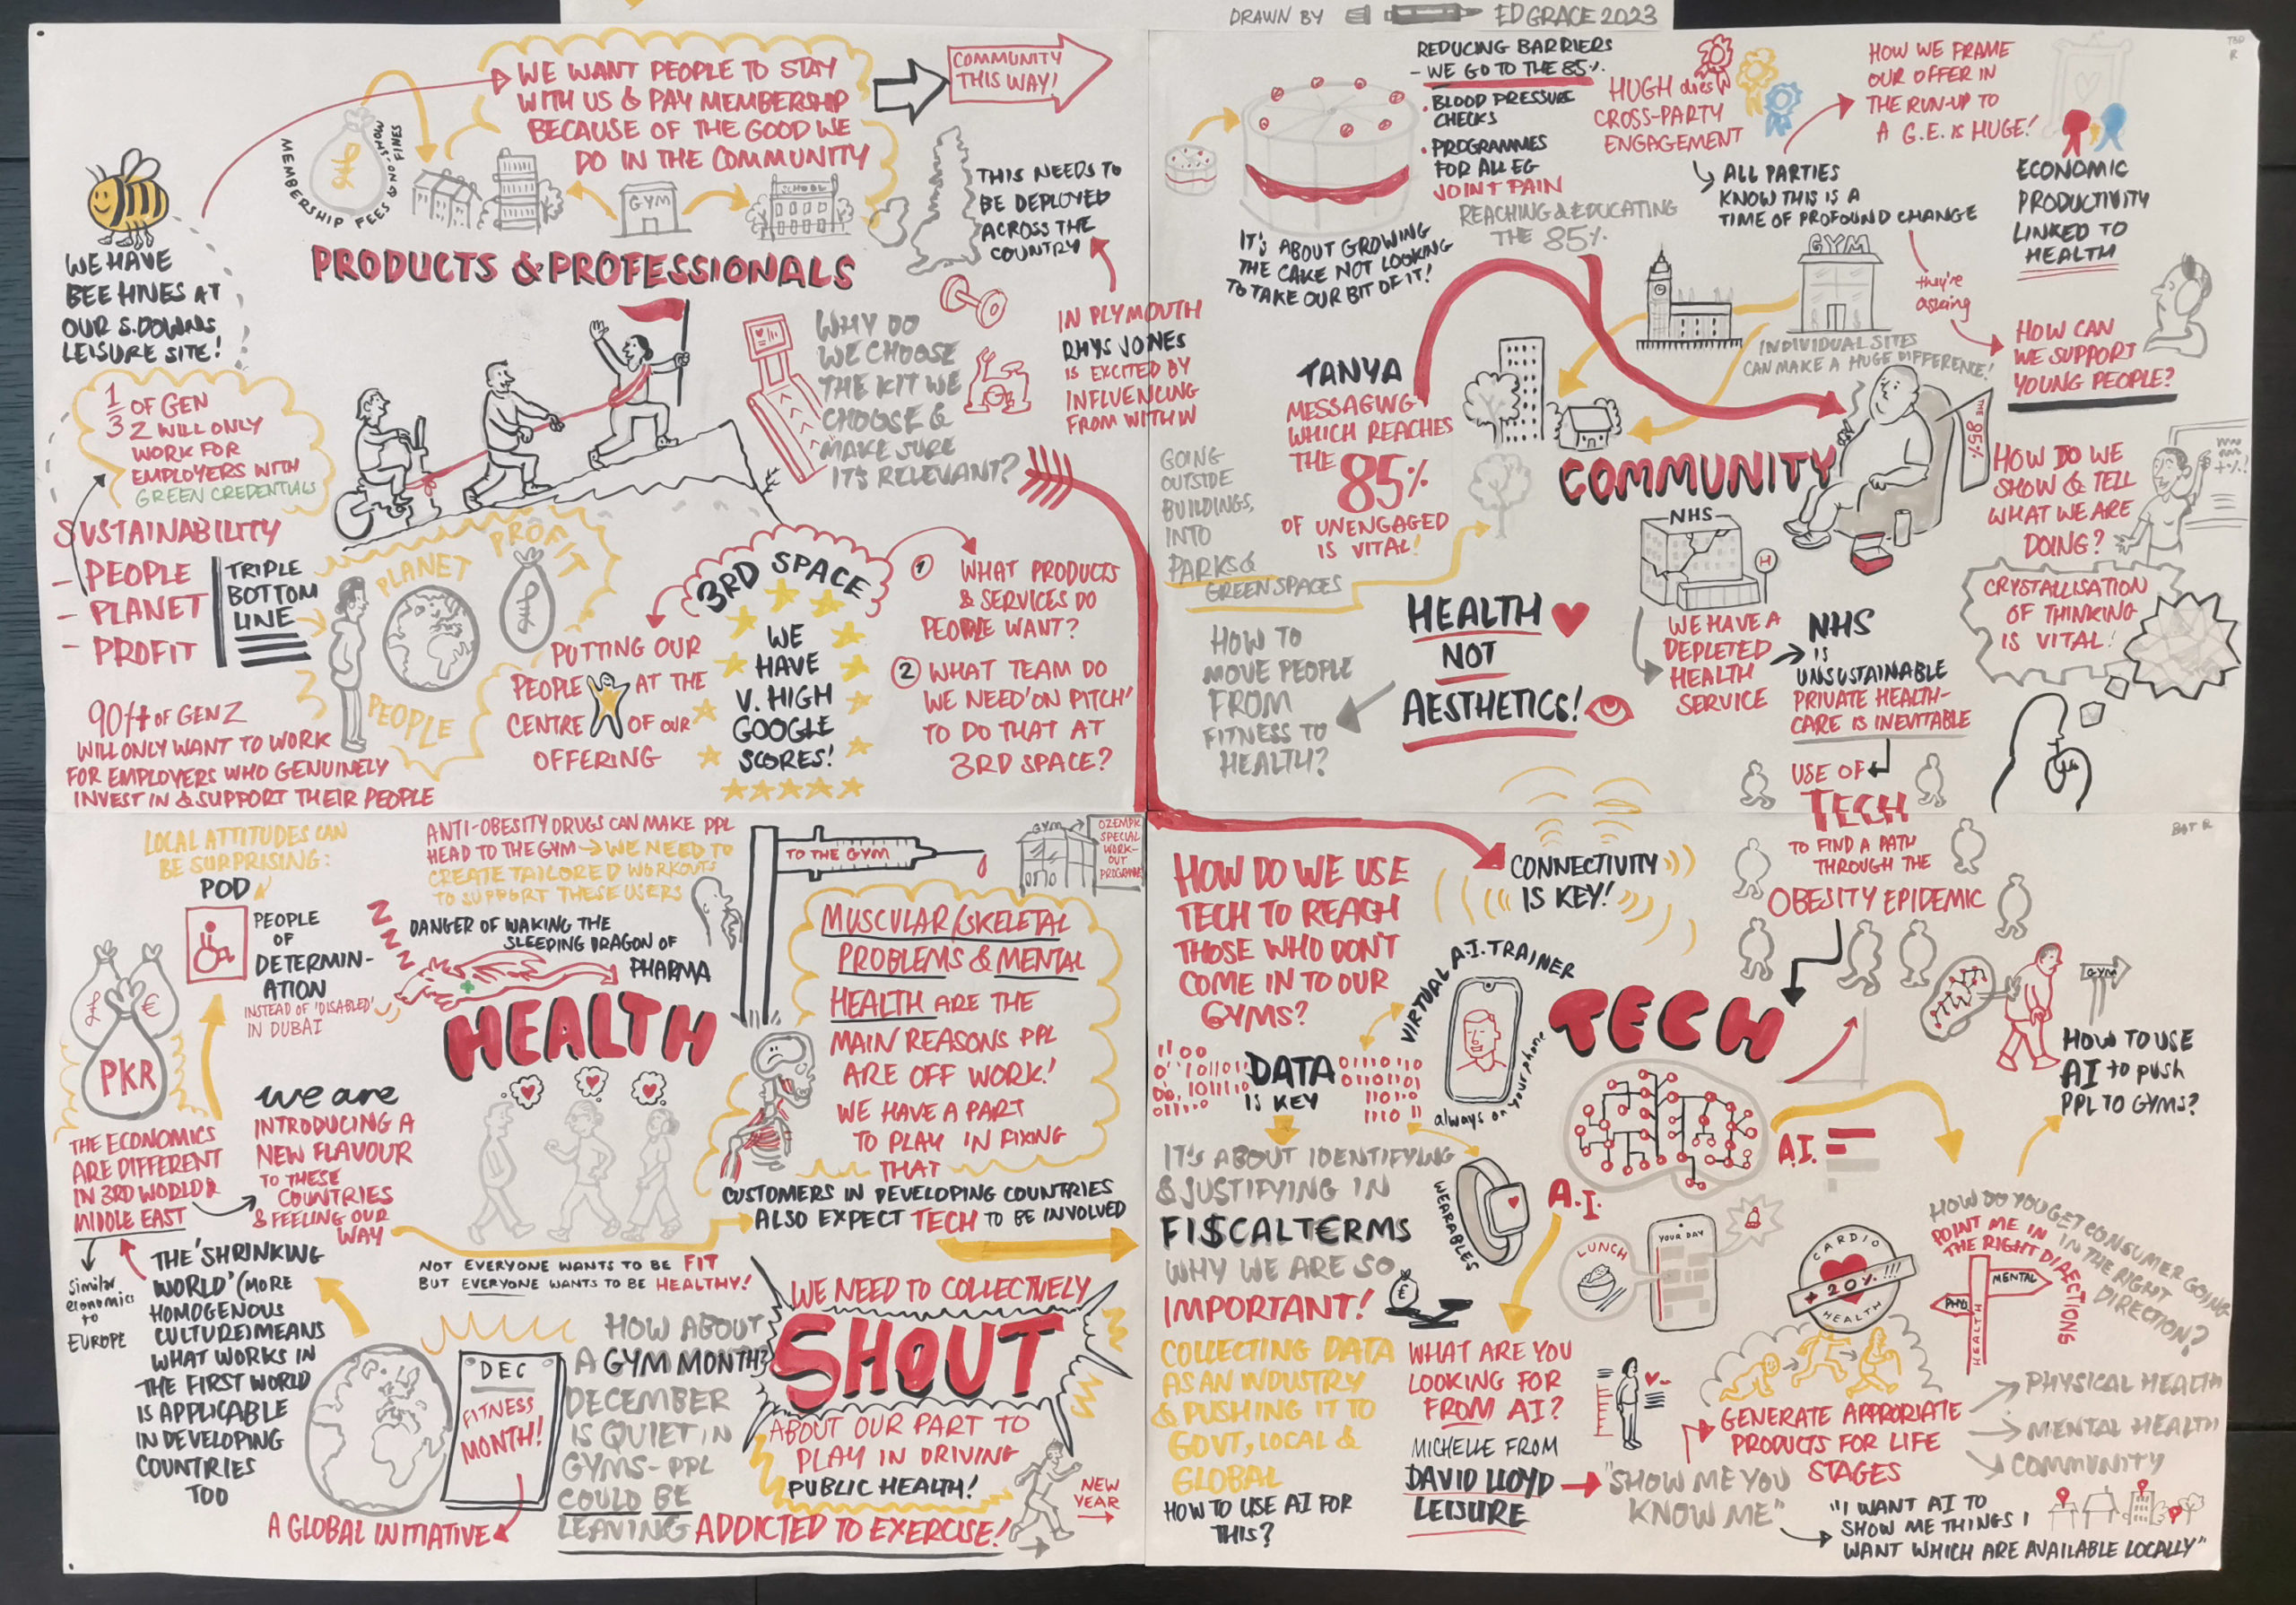 DRAWN BY
ED GRACE 2023
WE WANT PEOPLE TO STAY
WITH US & PAY MEMBERSHIP
BECAUSE OF THE GOOD WE
DO IN THE COMMUNITY
COMMUNITY
THIS WAY!
MEMBERSHIP FEES & NO-SHOW FINES
GYM
SCHOOL
THIS NEEDS TO
BE DEPLOYED
ACROSS THE
COUNTRY
WE HAVE
BEE HIVES AT
OUR S.DOWNS
LEISURE SITE!
PRODUCTS & PROFESSIONALS
IN PLYMOUTH
RHYS JONES
IS EXCITED BY
INFLUENCING
FROM WITHIN
WHY DO
WE CHOOSE
THE KIT WE
CHOOSE &
MAKE SURE
IT'S RELEVANT?
1/3 OF GEN
Z WILL ONLY
WORK FOR
EMPLOYERS WITH
GREEN CREDENTIALS
SUSTAINABILITY
- PEOPLE
- PLANET
- PROFIT
TRIPLE
BOTTOM
LINE
PLANET
PROFIT
£
PEOPLE
90%+ OF GEN Z
WILL ONLY WANT TO WORK
FOR EMPLOYERS WHO GENUINELY
INVEST IN & SUPPORT THEIR PEOPLE
3RD SPACE
PUTTING OUR
PEOPLE AT THE
CENTRE OF OUR
OFFERING
WE
HAVE
V. HIGH
GOOGLE
SCORES!
1 WHAT PRODUCTS
& SERVICES DO
PEOPLE WANT?
2 WHAT TEAM DO
WE NEED 'ON PITCH'
TO DO THAT AT
3RD SPACE?
REDUCING BARRIERS
- WE GO TO THE 85%
• BLOOD PRESSURE
CHECKS
• PROGRAMMES
FOR ALL EG
JOINT PAIN
REACHING & EDUCATING
THE 85%
IT'S ABOUT GROWING
THE CAKE NOT LOOKING
TO TAKE OUR BIT OF IT!
HUGH does
CROSS-PARTY
ENGAGEMENT
ALL PARTIES
KNOW THIS IS A
TIME OF PROFOUND CHANGE
HOW WE FRAME
OUR OFFER IN
THE RUN-UP TO
A G.E. IS HUGE!
ECONOMIC
PRODUCTIVITY
LINKED TO
HEALTH
they're
asking
HOW CAN
WE SUPPORT
YOUNG PEOPLE?
GYM
INDIVIDUAL SITES
CAN MAKE A HUGE DIFFERENCE!
TANYA
MESSAGING
WHICH REACHES
THE
85%
OF UNENGAGED
IS VITAL!
GOING
OUTSIDE
BUILDINGS,
INTO
PARKS &
GREEN SPACES
COMMUNITY
THE 85%
HOW DO WE
SHOW & TELL
WHAT WE ARE
DOING?
CRYSTALLISATION
OF THINKING
IS VITAL!
NHS
H
WE HAVE A
DEPLETED
HEALTH
SERVICE
NHS
IS
UNSUSTAINABLE
PRIVATE HEALTH-
CARE IS INEVITABLE
HEALTH
NOT
AESTHETICS!
HOW TO
MOVE PEOPLE
FROM
FITNESS TO
HEALTH?
USE OF
TECH
TO FIND A PATH
THROUGH THE
OBESITY EPIDEMIC
LOCAL ATTITUDES CAN
BE SURPRISING:
POD
PEOPLE
OF
DETERMIN-
ATION
INSTEAD OF 'DISABLED'
IN DUBAI
ANTI-OBESITY DRUGS CAN MAKE PPL
HEAD TO THE GYM → WE NEED TO
CREATE TAILORED WORKOUTS
TO SUPPORT THESE USERS
ZZZZ
DANGER OF WAKING THE
SLEEPING DRAGON OF
PHARMA
TO THE GYM
GYM
OZEMPIC
SPECIAL
WORK-
OUT
PROGRAMME
HEALTH
£
€
PKR
THE ECONOMICS
ARE DIFFERENT
IN 3RD WORLD &
MIDDLE EAST
Similar
economics
to
EUROPE
we are
INTRODUCING A
NEW FLAVOUR
TO THESE
COUNTRIES
& FEELING OUR
WAY
MUSCULAR/SKELETAL
PROBLEMS & MENTAL
HEALTH ARE THE
MAIN REASONS PPL
ARE OFF WORK!
WE HAVE A PART
TO PLAY IN FIXING
THAT
CUSTOMERS IN DEVELOPING COUNTRIES
ALSO EXPECT TECH TO BE INVOLVED
NOT EVERYONE WANTS TO BE FIT
BUT EVERYONE WANTS TO BE HEALTHY!
THE 'SHRINKING
WORLD' (MORE
HOMOGENOUS
CULTURE) MEANS
WHAT WORKS IN
THE FIRST WORLD
IS APPLICABLE
IN DEVELOPING
COUNTRIES
TOO
DEC
FITNESS
MONTH!
A GLOBAL INITIATIVE
HOW ABOUT
A GYM MONTH?
DECEMBER
IS QUIET IN
GYMS - PPL
COULD BE
LEAVING ADDICTED TO EXERCISE!
WE NEED TO COLLECTIVELY
SHOUT
ABOUT OUR PART TO
PLAY IN DRIVING
PUBLIC HEALTH!
NEW
YEAR
HOW DO WE USE
TECH TO REACH
THOSE WHO DON'T
COME IN TO OUR
GYMS?
CONNECTIVITY
IS KEY!
VIRTUAL A.I. TRAINER
always on your phone
DATA
IS KEY
TECH
GYM
HOW TO USE
AI to push
PPL TO GYMS?
IT'S ABOUT IDENTIFYING
& JUSTIFYING IN
FI$CAL T€RMS
WHY WE ARE SO
IMPORTANT!
€
COLLECTING DATA
AS AN INDUSTRY
& PUSHING IT TO
GOVT, LOCAL &
GLOBAL
HOW TO USE AI FOR
THIS?
WEARABLES
A.I.
A.I. =
WHAT ARE YOU
LOOKING FOR
FROM AI?
MICHELLE FROM
DAVID LLOYD
LEISURE
LUNCH
YOUR DAY
CARDIO
+ 20% !!!
HEALTH
"SHOW ME YOU
KNOW ME"
GENERATE APPRORIATE
PRODUCTS FOR LIFE
STAGES
HOW DO YOU GET CONSUMER GOING
IN THE RIGHT
DIRECTION?
POINT ME IN
THE RIGHT DIRECTIONS
MENTAL
PHYS
HEALTH
PHYSICAL HEALTH
MENTAL HEALTH
COMMUNITY
"I WANT AI TO
SHOW ME THINGS I
WANT WHICH ARE AVAILABLE LOCALLY"